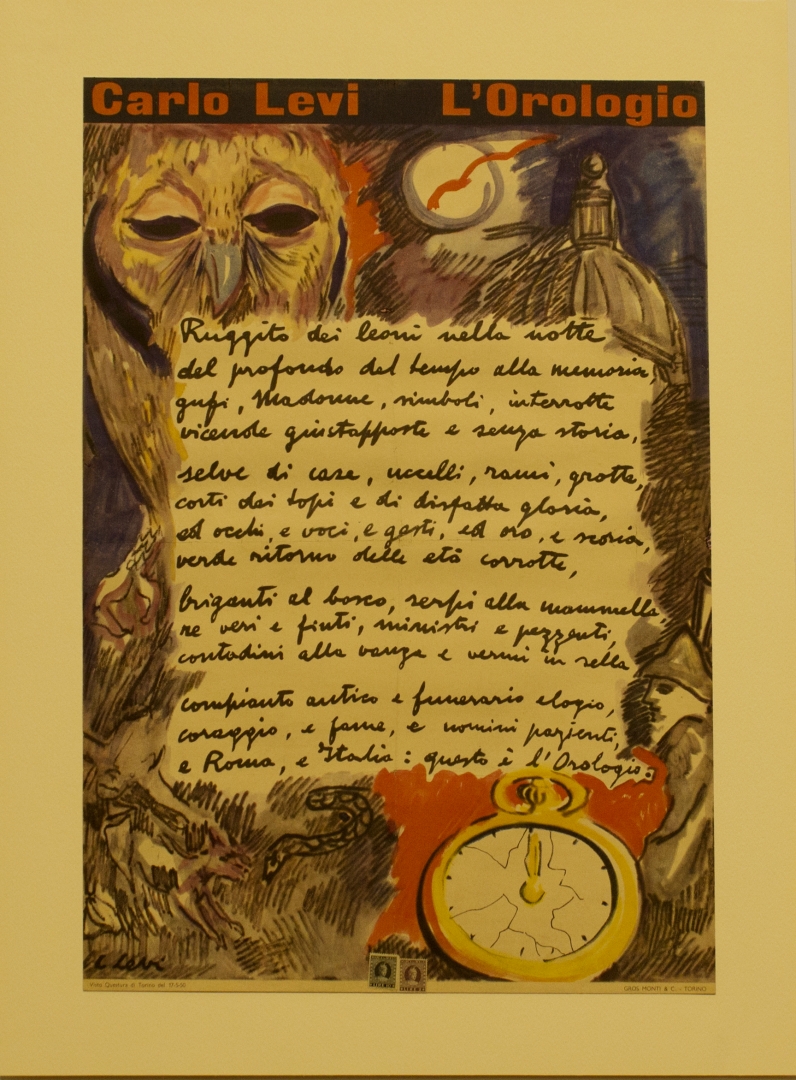 Carlo Levi L'Orologio
Ruggito dei leoni nella notte
del profondo del tempo alla memoria,
gufi, Madonne, simboli, interrotte
vicende giustapposte e senza storia,
selve di case, uccelli, rami, grotte,
corti dei topi e di disfatta gloria,
ed occhi, e voci, e gesti, ed oro, e scoria,
verde ritorno delle età corrotte,
briganti al bosco, serpi alla mammella,
re veri e finti, ministri e pezzenti,
contadini alla vanga e vermi in sella
compianto antico e funerario elogio,
coraggio, e fame, e uomini pazienti,
e Roma, e Italia: questo è l'Orologio:
C. Levi
Visto Questura di Torino del
GROS, MONTI & C. - TORINO